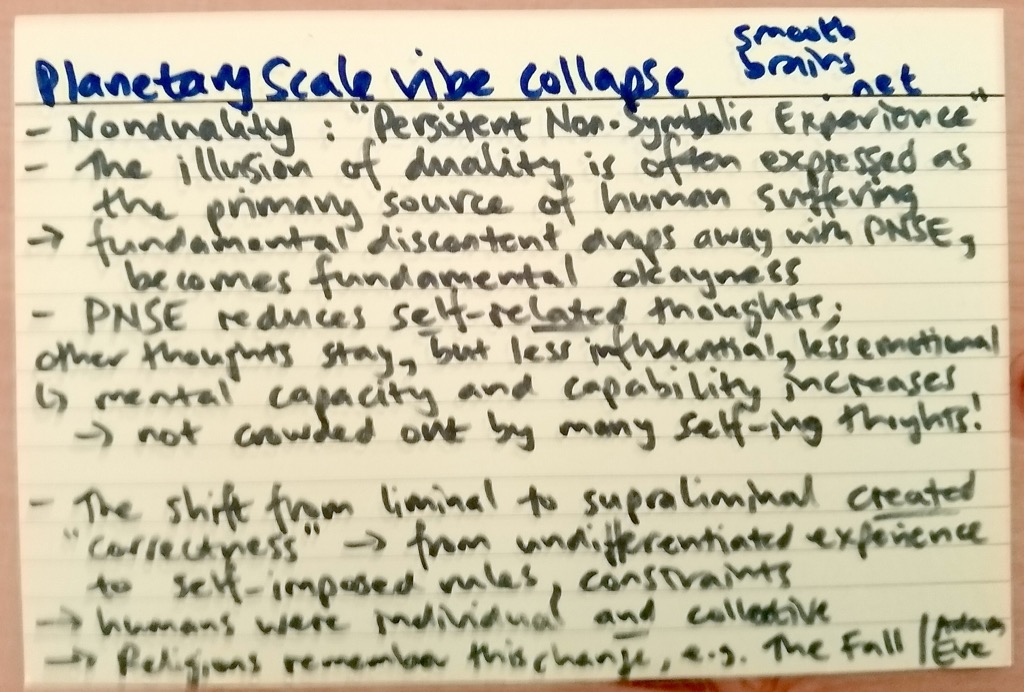 Planetary Scale vibe collapse
smooth
brains
.net
- Nonduality : "Persistent Non-Symbolic Experience"
- The illusion of duality is often expressed as
the primary source of human suffering
→ fundamental discontent drops away with PNSE,
becomes fundamental okayness
- PNSE reduces self-related thoughts;
other thoughts stay, but less influential, less emotional
↳ mental capacity and capability increases
→ not crowded out by many self-ing thoughts!
- The shift from liminal to supraliminal created
"correctness" → from undifferentiated experience
to self-imposed rules, constraints
→ humans were individual and collective
→ Religions remember this change, e.g. The Fall / Adam
Eve